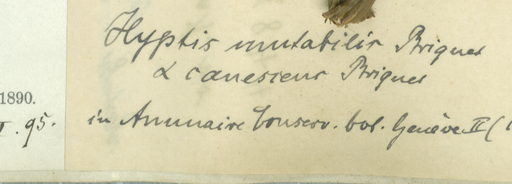 Hyptis mutabilis Briquet
α canescens Briquet
1890.
. 95.
in Annuaire Conserv. bot. Genève II (